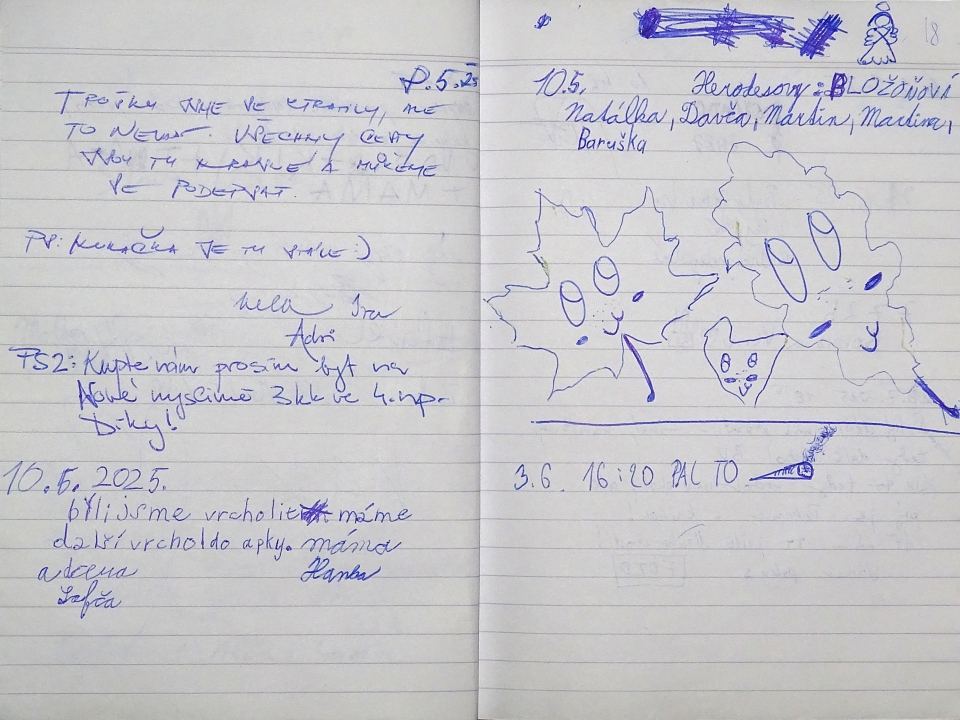 8.5.25
TROŠKU JSME SE ZTRATILY, ALE
TO NEVADÍ. VŠECHNY ČLENY
JSOU TU KRÁSNÉ A MŮŽEME
SE PODEPSAT.
PS: KUKAČKA JE TU STÁLE :)
Iva
Adri
PS2: Kupte nám prosím byt na
Nové 3kk ve 4.np.
Díky!
10.5.2025.
byli jsme vrcholit máme
další vrchol do apky. máma
a dcera Hanka
Žofča
18
10.5. Herodesovy: BLOŽOŇOVÁ
Natálka, Davča, Martin, Martina,
Baruška
3.6. 16:20 PAL TO